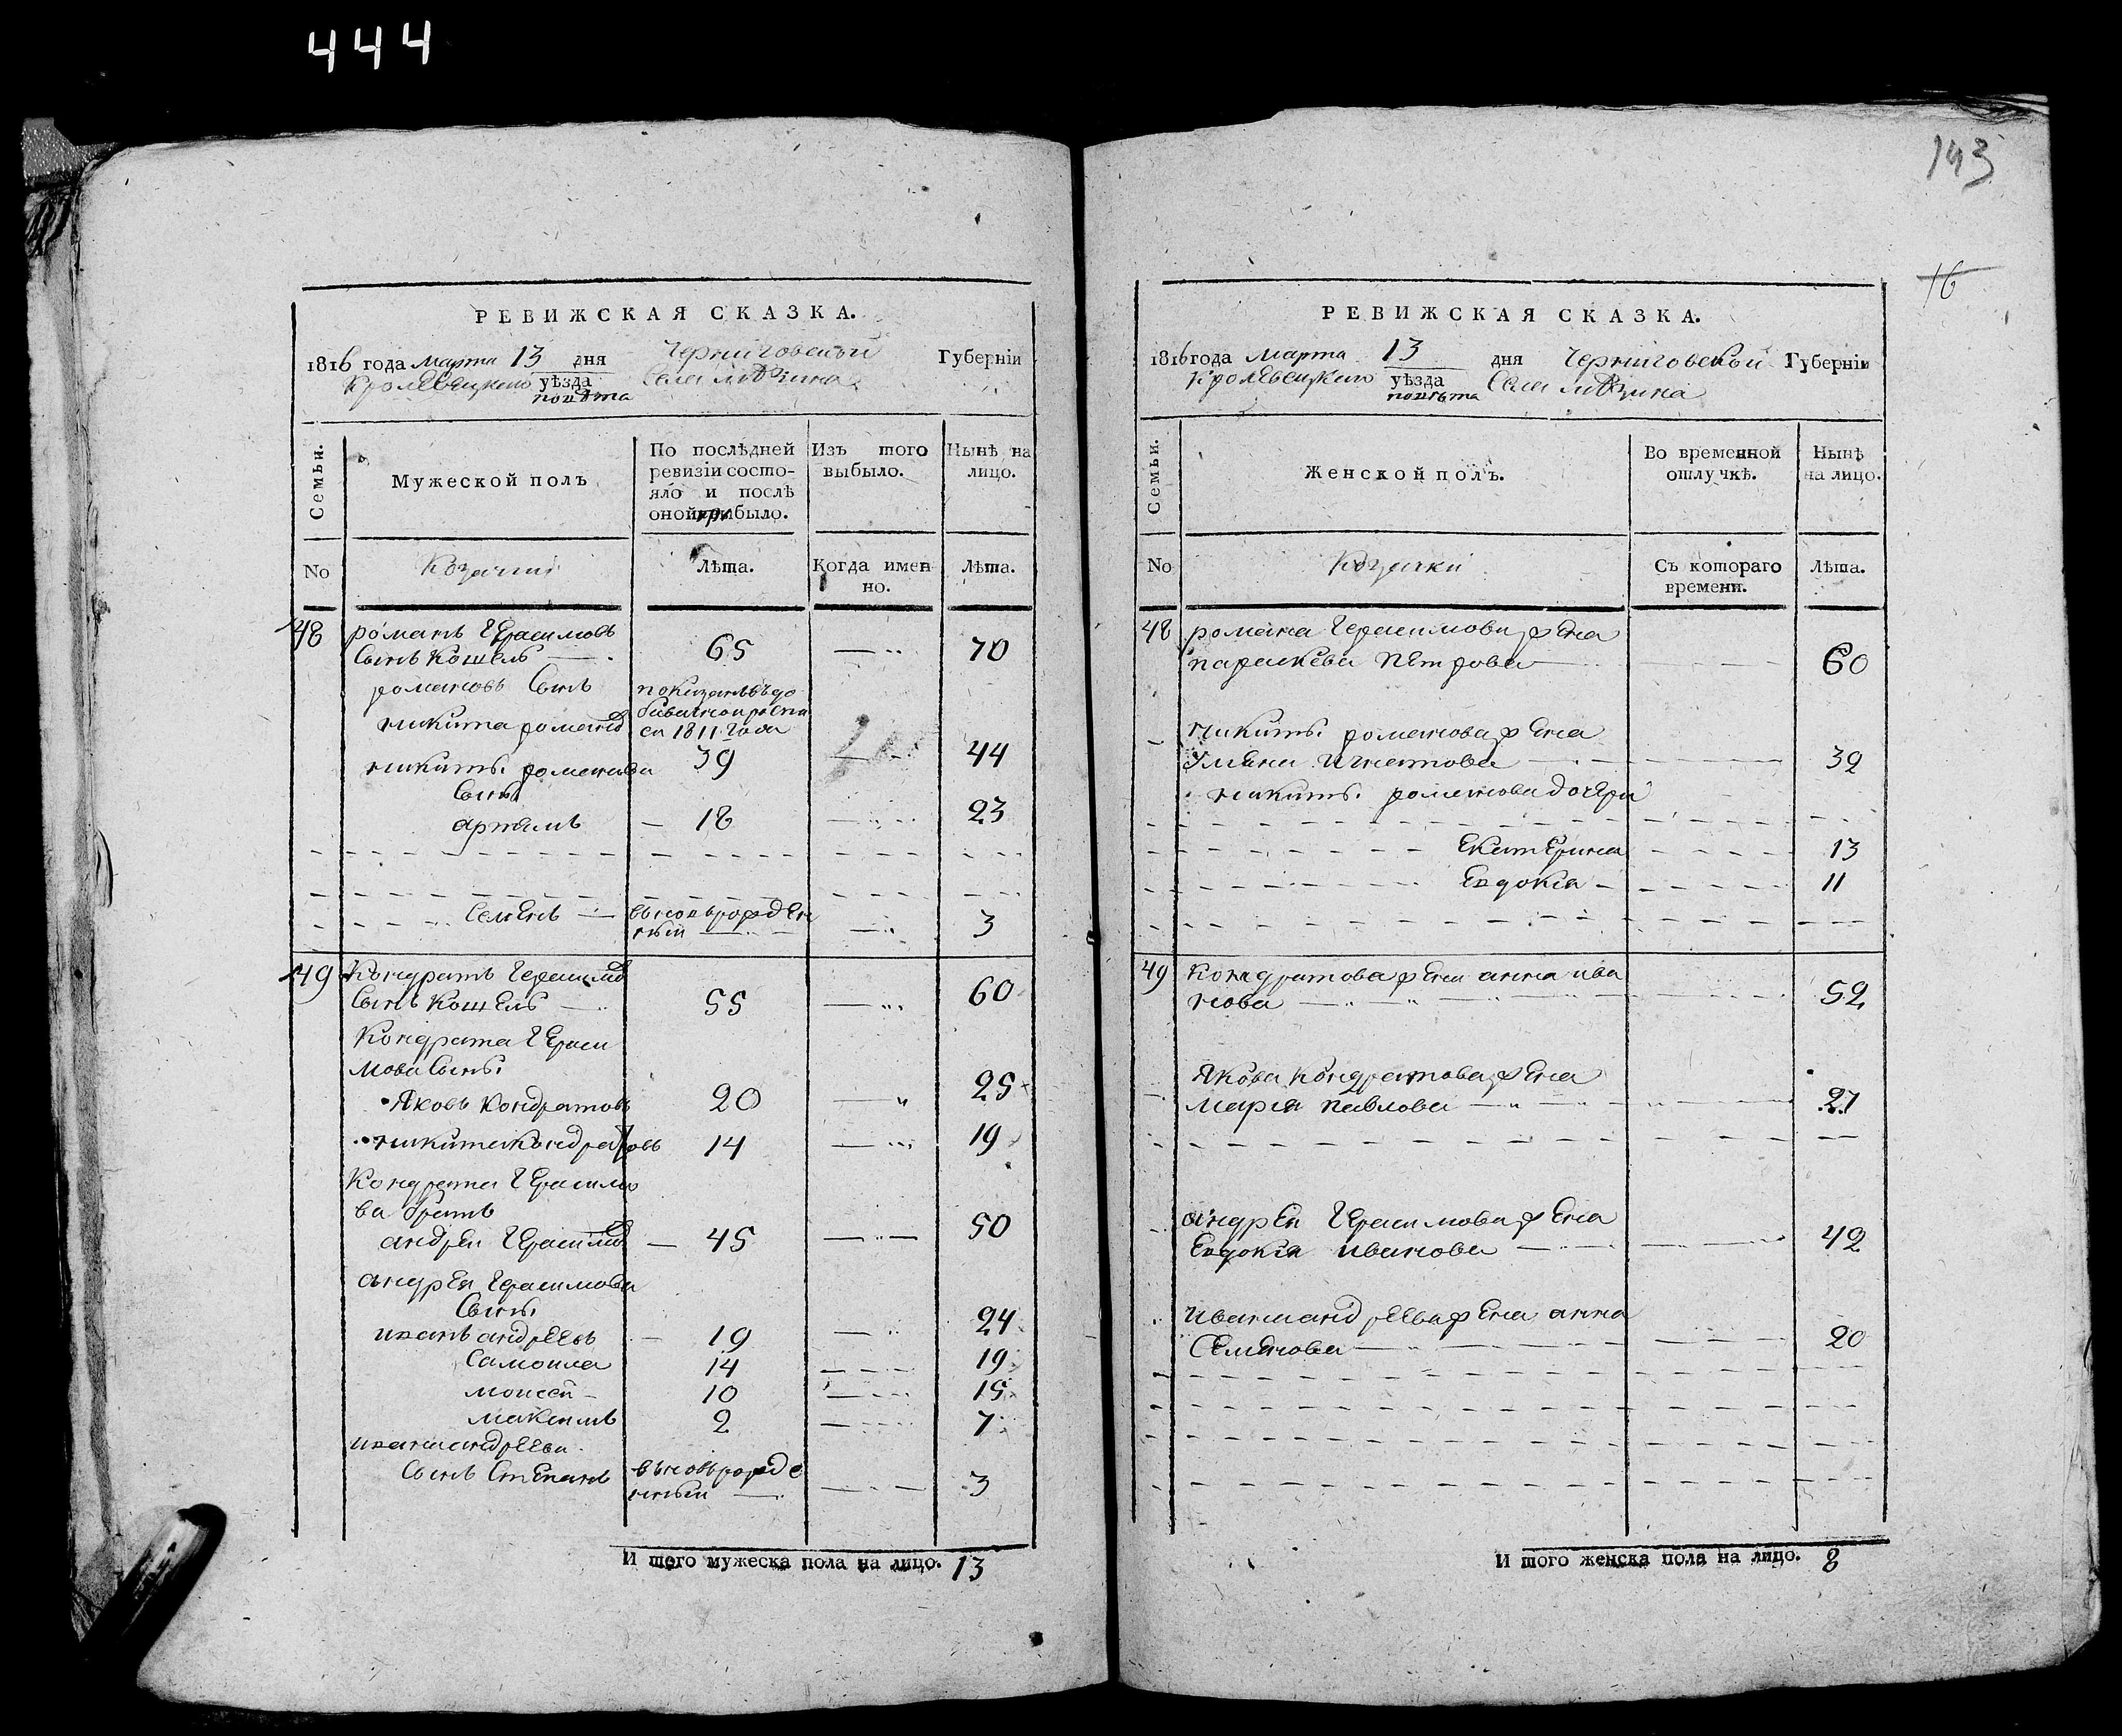 444
143
16
РЕВИЖСКАЯ СКАЗКА.
1816 года марта 13 дня Черниговской Губерніи
Кролевецкого уѣзда Села
повѣта
Семьи.
Мужеской полъ
По послѣдней ревизіи состо-
яло и послѣ
оной прибыло.
Изъ того
выбыло.
Нынѣ на
лицо.
No
Козаки
Лѣта.
Когда имен
но.
Лѣта.
48 романъ Герасимовъ
сынъ Кошель 65 70
романовъ сынъ
никита романов 1811 года
39 44
никиты романова
сынъ
артемъ 18 23
семенъ вновьрожден
ный 3
49 Кондратъ Герасимов
сынъ Кошель 55 60
Кондрата Гераси
мова сыны
Яковъ Кондратовъ 20 25
никита Кондратовъ 14 19
Кондрата Герасимо
ва братъ
андрей Герасимов 45 50
андрея Герасимова
сыны
иванъ андреевъ 19 24
Самойла 14 19
моисей 10 15
максимъ 2 7
ивана андреева
сынъ Степанъ вновьрожде
нный 3
И того мужеска пола на лицо. 13
РЕВИЖСКАЯ СКАЗКА.
1816 года марта 13 дня Черниговской Губерніи
Кролевецкого уѣзда Села
повѣта
Семьи.
Женской полъ.
Во временной
отлучкѣ.
Нынѣ
на лицо.
No
Козачки
Съ котораго
времени.
Лѣта.
48 романа Герасимова жена
параскева петрова 60
никиты романова жена
Ульяна Игнатова 39
никиты романова дочери
Екатерина 13
Евдокія 11
49 Кондратова жена анна ива
нова 52
Якова Кондратова жена
марія павлова 27
андрея Герасимова жена
Евдокія иванова 42
ивана андреева жена анна
Семенова 20
И того женска пола на лицо. 8